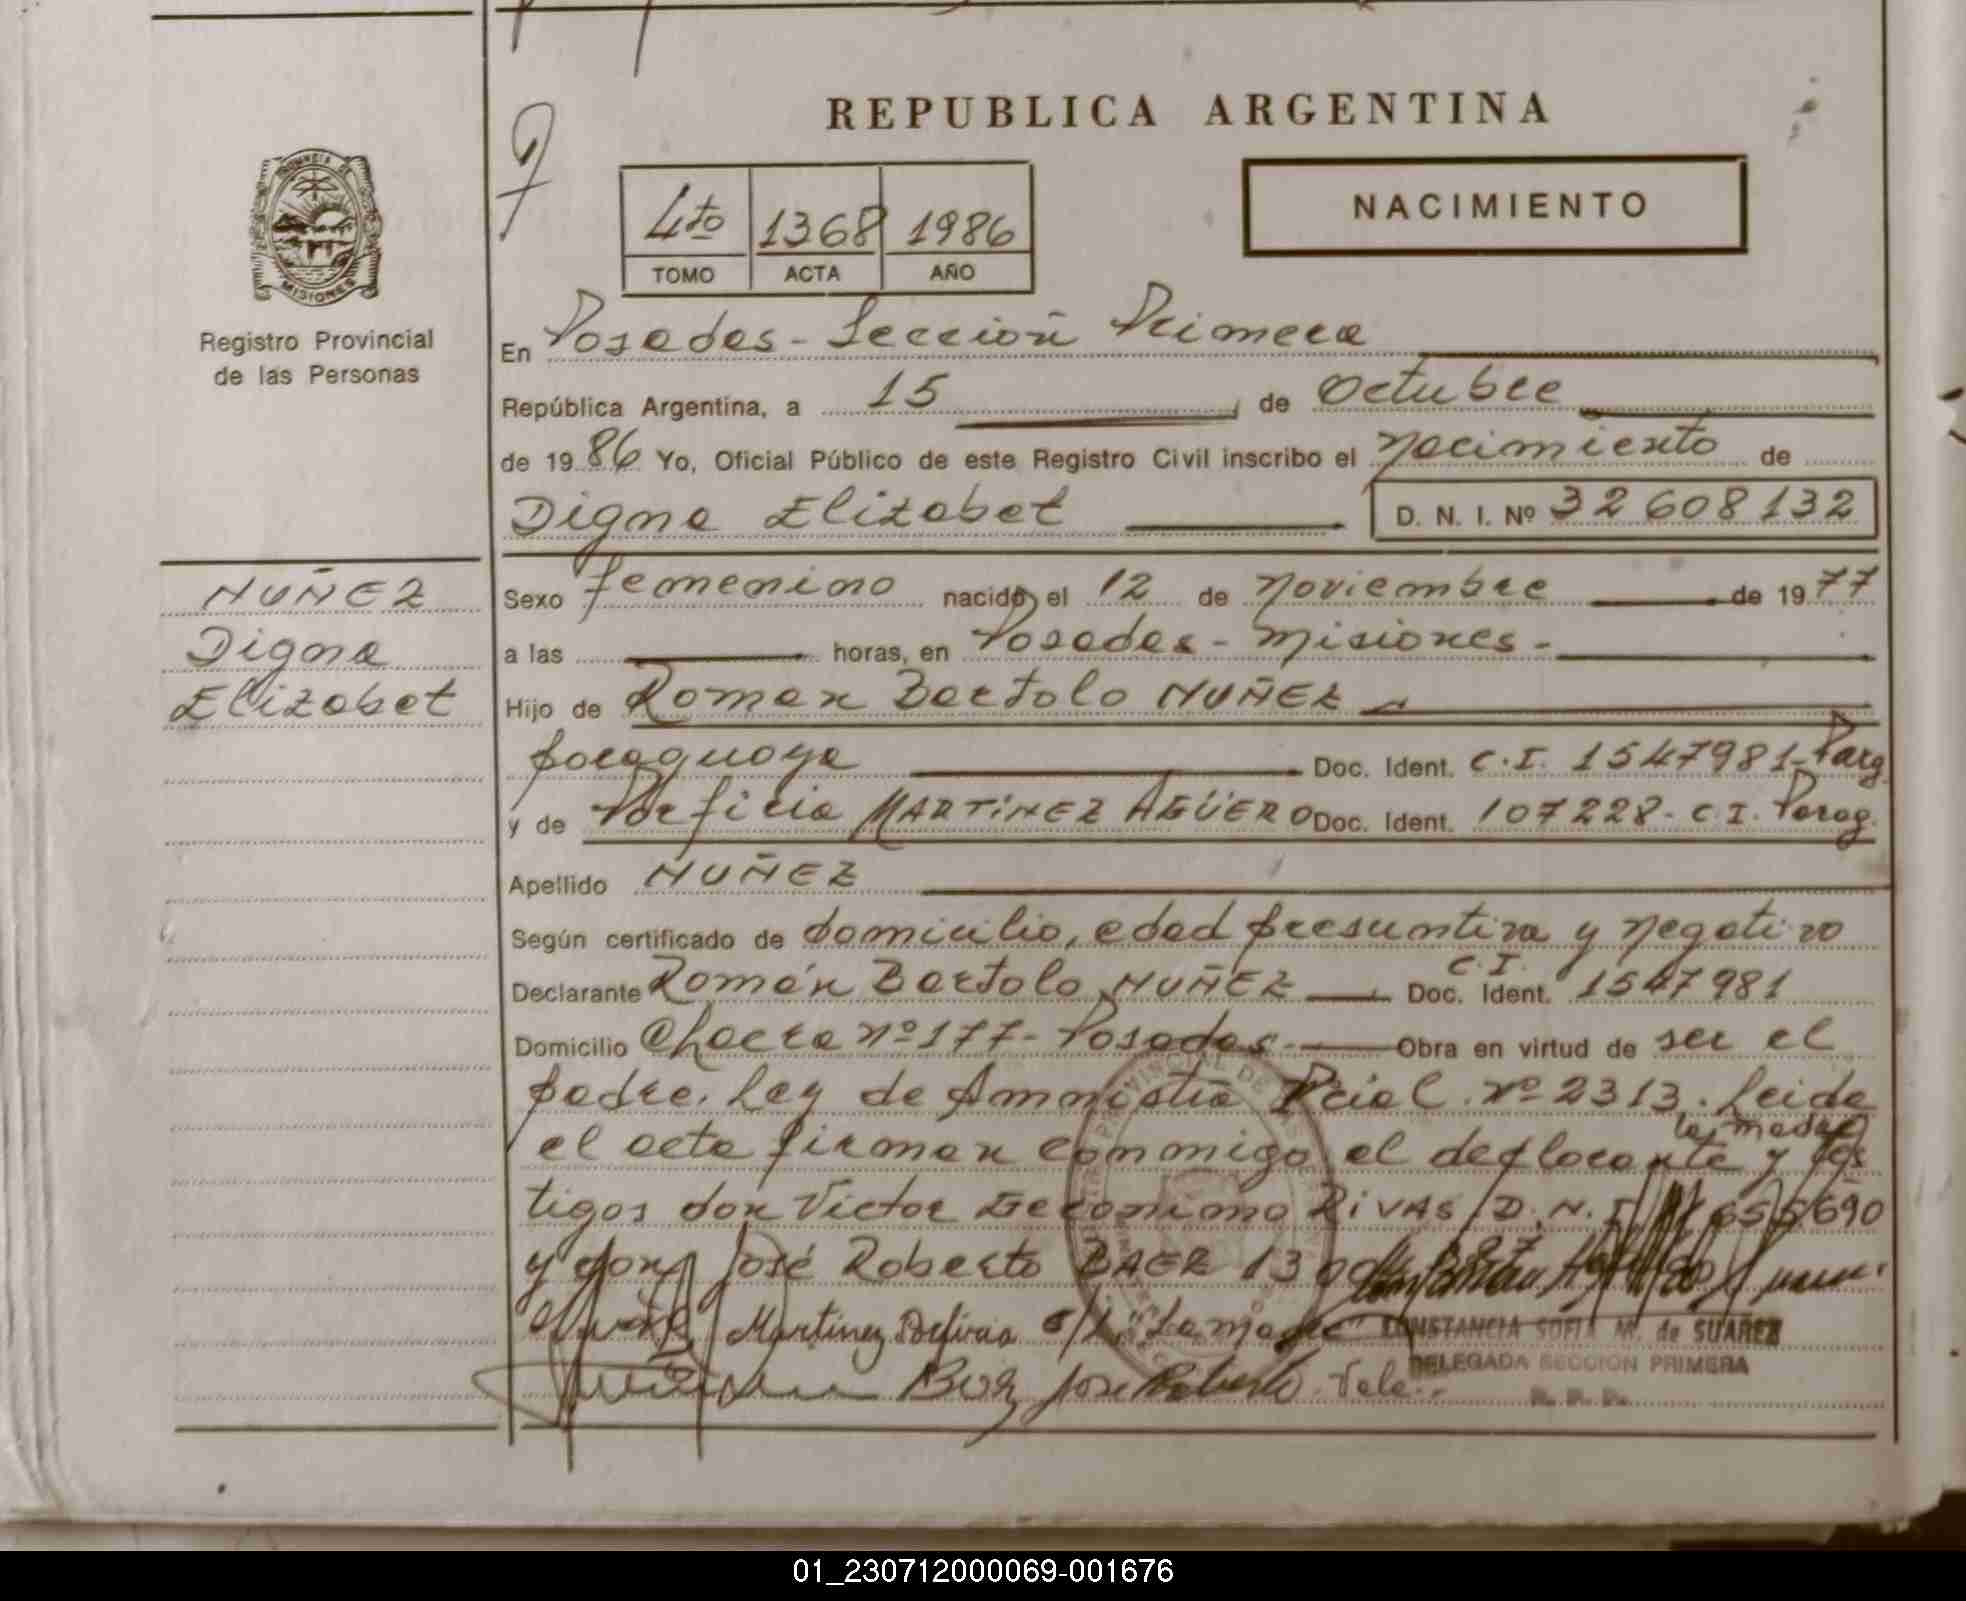 REPUBLICA ARGENTINA
NACIMIENTO
4to 1368 1986
TOMO ACTA AÑO
PROVINCIA DE
MISIONES
Registro Provincial
de las Personas
En Posadas - Sección Primera
República Argentina, a 15 de Octubre
de 1986 Yo, Oficial Público de este Registro Civil inscribo el Nacimiento de
Digna Elizabet D. N. I. Nº 32608132
NUÑEZ
Digna
Elizabet
Sexo femenino nacido el 12 de Noviembre de 1977
a las horas, en Posadas - Misiones -
Hijo de Roman Bartolo NUÑEZ
paraguaya Doc. Ident. C.I. 1547981-Parg
y de Porfiria MARTíNEZ AGÜERO Doc. Ident. 107228- C.I. Parag.
Apellido NUÑEZ
Según certificado de domicilio, edad presuntiva y negativo
Declarante Román Bartolo NUÑEZ Doc. Ident. C.I. 1547981
Domicilio Chacra nº 177- Posadas - Obra en virtud de ser el
padre. Ley de Amnistia Pcial. nº 2313. Leida
la madre
el acta firman conmigo el declarante y tes
tigos don Victor Geronimo RiVAS D.N.I. 655690
y don José Roberto BAEZ 13
Martinez Porfiria S/L: "La madre"
CONSTANCIA SOFIA M. de SUAREZ
DELEGADA SECCION PRIMERA
R. P. P.
Baez Jose Roberto. Vale..
01_230712000069-001676